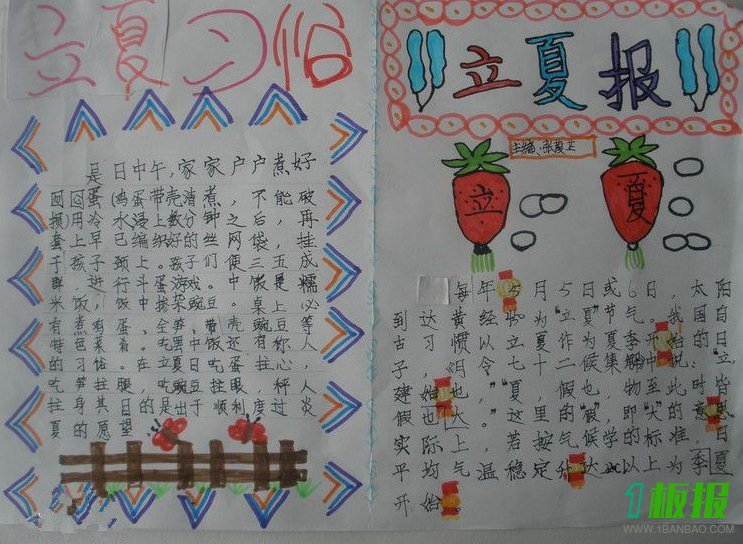 立夏习俗
是日中午,家家户户煮好
囫囵蛋(鸡蛋带壳清煮,不能破
损)用冷水浸上数分钟之后,再
套上早已编织好的丝网袋,挂
于孩子颈上。孩子们便三五成
群,进行斗蛋游戏。中饭是糯
米饭,饭中掺杂豌豆。桌上必
有煮鸡蛋、全笋、带壳豌豆等
特色菜肴。吃罢中饭还有称人
的习俗。在立夏日吃蛋拄心,
吃笋拄腿,吃豌豆拄眼,秤人
拄身其目的是出于顺利度过炎
夏的愿望
立夏报
主编:张
立
夏
每年5月5日或6日,太阳
到达黄经
古习惯以立夏作为夏季开始的日
子,《月令七十二候集解》中说:“立
建始也,“夏,假也,物至此时皆
假大也。”这里的“假”,即“大”的意思
实际上,若按气候学的标准,日
平均气温稳定升达以上为夏季
开始。
1板报
WWW.1BANBAO.COM